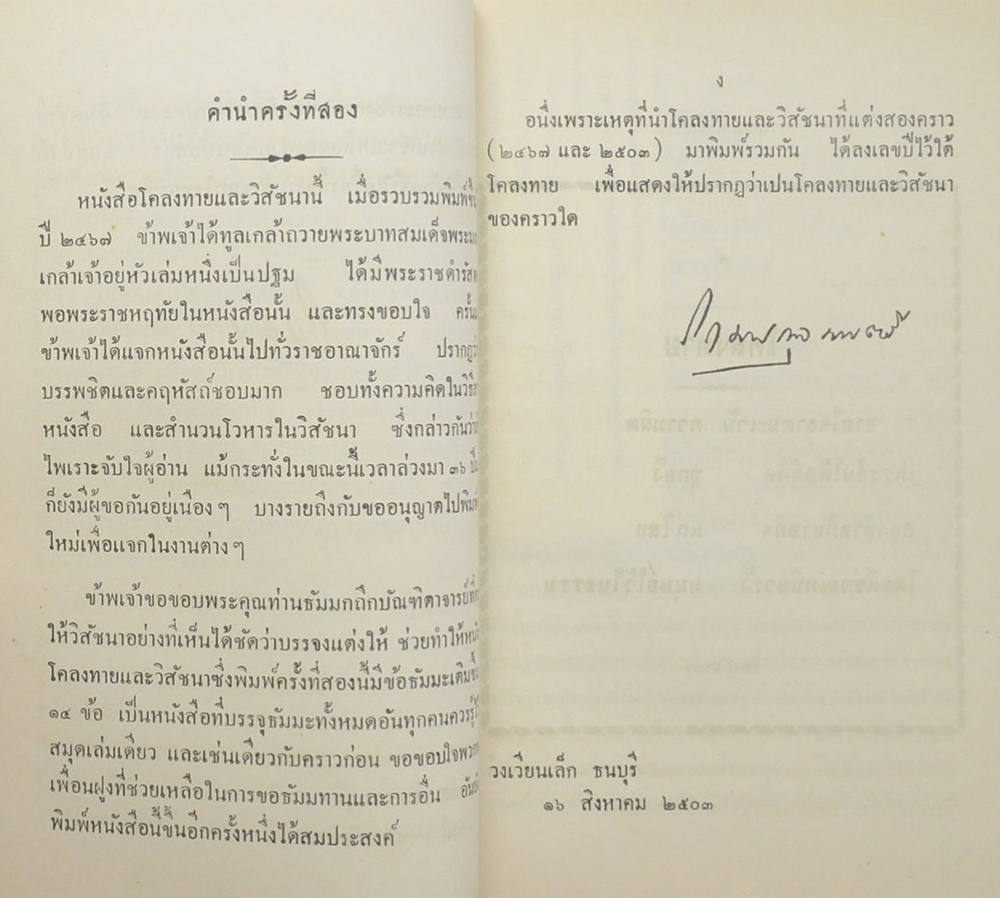 คำนำครั้งที่สอง
หนังสือโคลงทายและวิสัชนานี้ เมื่อรวบรวมพิมพ์ขึ้น
ปี ๒๔๖๗ ข้าพเจ้าได้ทูลเกล้าถวายพระบาทสมเด็จพระมง
เกล้าเจ้าอยู่หัวเล่มหนึ่งเป็นปฐม ได้มีพระราชดำรัส
พอพระราชหฤทัยในหนังสือนั้น และทรงขอบใจ ครั้น
ข้าพเจ้าได้แจกหนังสือนั้นไปทั่วราชอาณาจักร์ ปรากฏว่า
บรรพชิตและคฤหัสถ์ชอบมาก ชอบทั้งความคิดในวิธี
หนังสือ และสำนวนโวหารในวิสัชนา ซึ่งกล่าวกันว่า
ไพเราะจับใจผู้อ่าน แม้กระทั่งในขณะนี้เวลาล่วงมา ๓๖ ปี
ก็ยังมีผู้ขอกันอยู่เนือง ๆ บางรายถึงกับขออนุญาตไปพิมพ์
ใหม่เพื่อแจกในงานต่าง ๆ
ข้าพเจ้าขอขอบพระคุณท่านธัมมกถึกบัณฑิตาจารย์ที่
ให้วิสัชนาอย่างที่เห็นได้ชัดว่าบรรจงแต่งให้ ช่วยทำให้
โคลงทายและวิสัชนาซึ่งพิมพ์ครั้งที่สองนี้มีข้อธัมมะเติมขึ้น
๑๔ ข้อ เป็นหนังสือที่บรรจุธัมมะทั้งหมดอันทุกคนควรรู้
สมุดเล่มเดียว และเช่นเดียวกับคราวก่อน ขอขอบใจพวก
เพื่อนฝูงที่ช่วยเหลือในการขอธัมมทานและการอื่น
พิมพ์หนังสือนี้ขึ้นอีกครั้งหนึ่งได้สมประสงค์
ง
อนึ่งเพราะเหตุที่นำโคลงทายและวิสัชนาที่แต่งสองคราว
(๒๔๖๗ และ ๒๕๐๓) มาพิมพ์รวมกัน ได้ลงเลขปีไว้ใต้
โคลงทาย เพื่อแสดงให้ปรากฏว่าเปนโคลงทายและวิสัชนา
ของคราวใด
วงเวียนเล็ก ธนบุรี
๑๖ สิงหาคม ๒๕๐๓